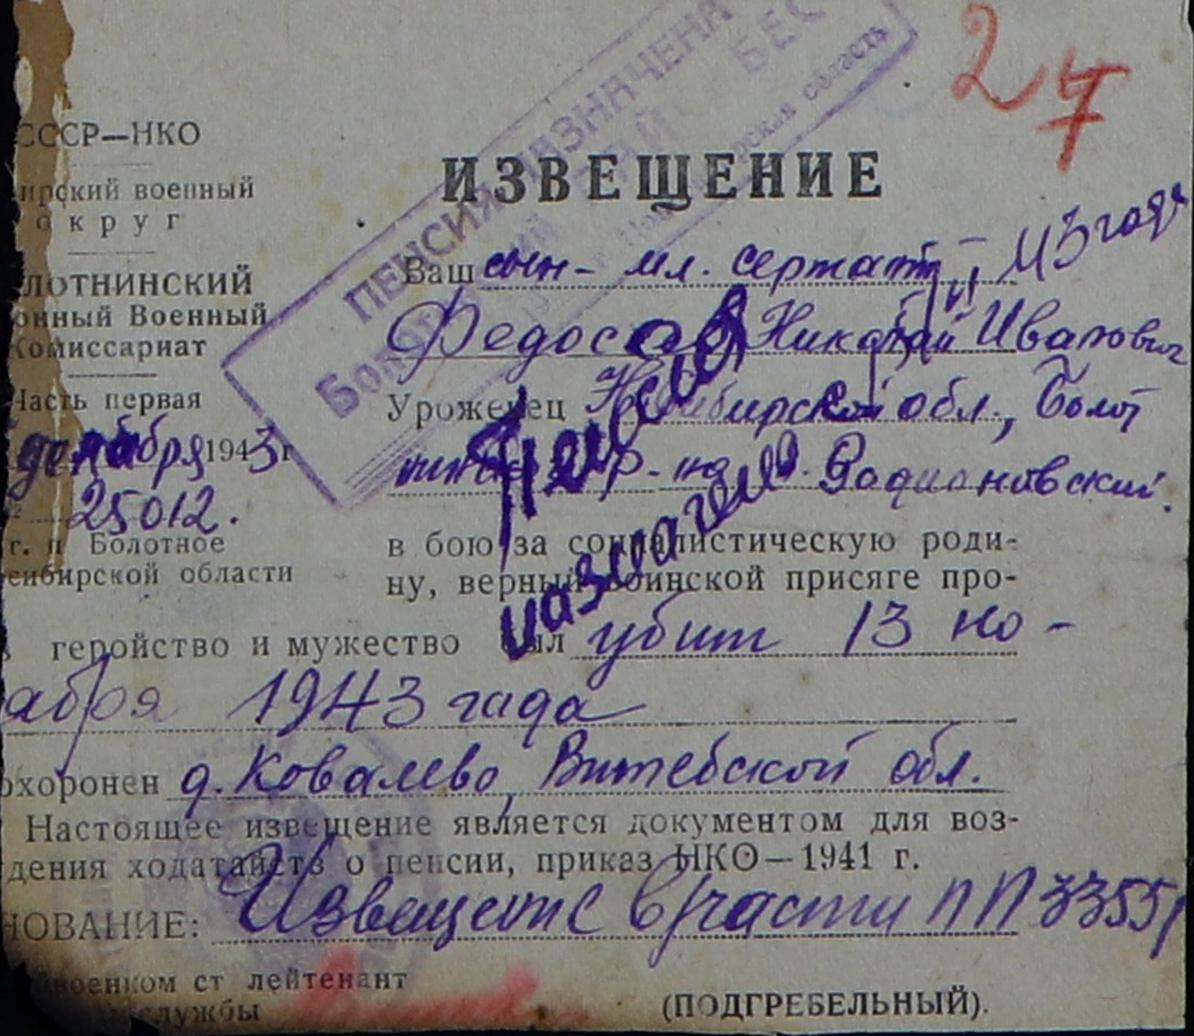 27
СССР—НКО
ирский военный
округ
ЛОТНИНСКИЙ
онный Военный
Комиссариат
Часть первая
декабря 1943 г
25012.
г. п Болотное
сибирской области
ПЕНСИЯ НАЗНАЧЕНА
ИЗВЕЩЕНИЕ
Ваш сын - мл. сержант
Федосов Николай Иванович
Уроженец Новосибирской обл., Болот
р-на Радионовский.
Пенсия
назначена
в бою за социалистическую роди-
ну, верный воинской присяге про-
геройство и мужество был убит 13 но-
ября 1943 года
охоронен д. Ковалево, Витебской обл.
Настоящее извещение является документом для воз-
дения ходатайств о пенсии, приказ НКО—1941 г.
НОВАНИЕ: Извещение в/части ПП 33551
военком ст лейтенант
службы
(ПОДГРЕБЕЛЬНЫЙ).